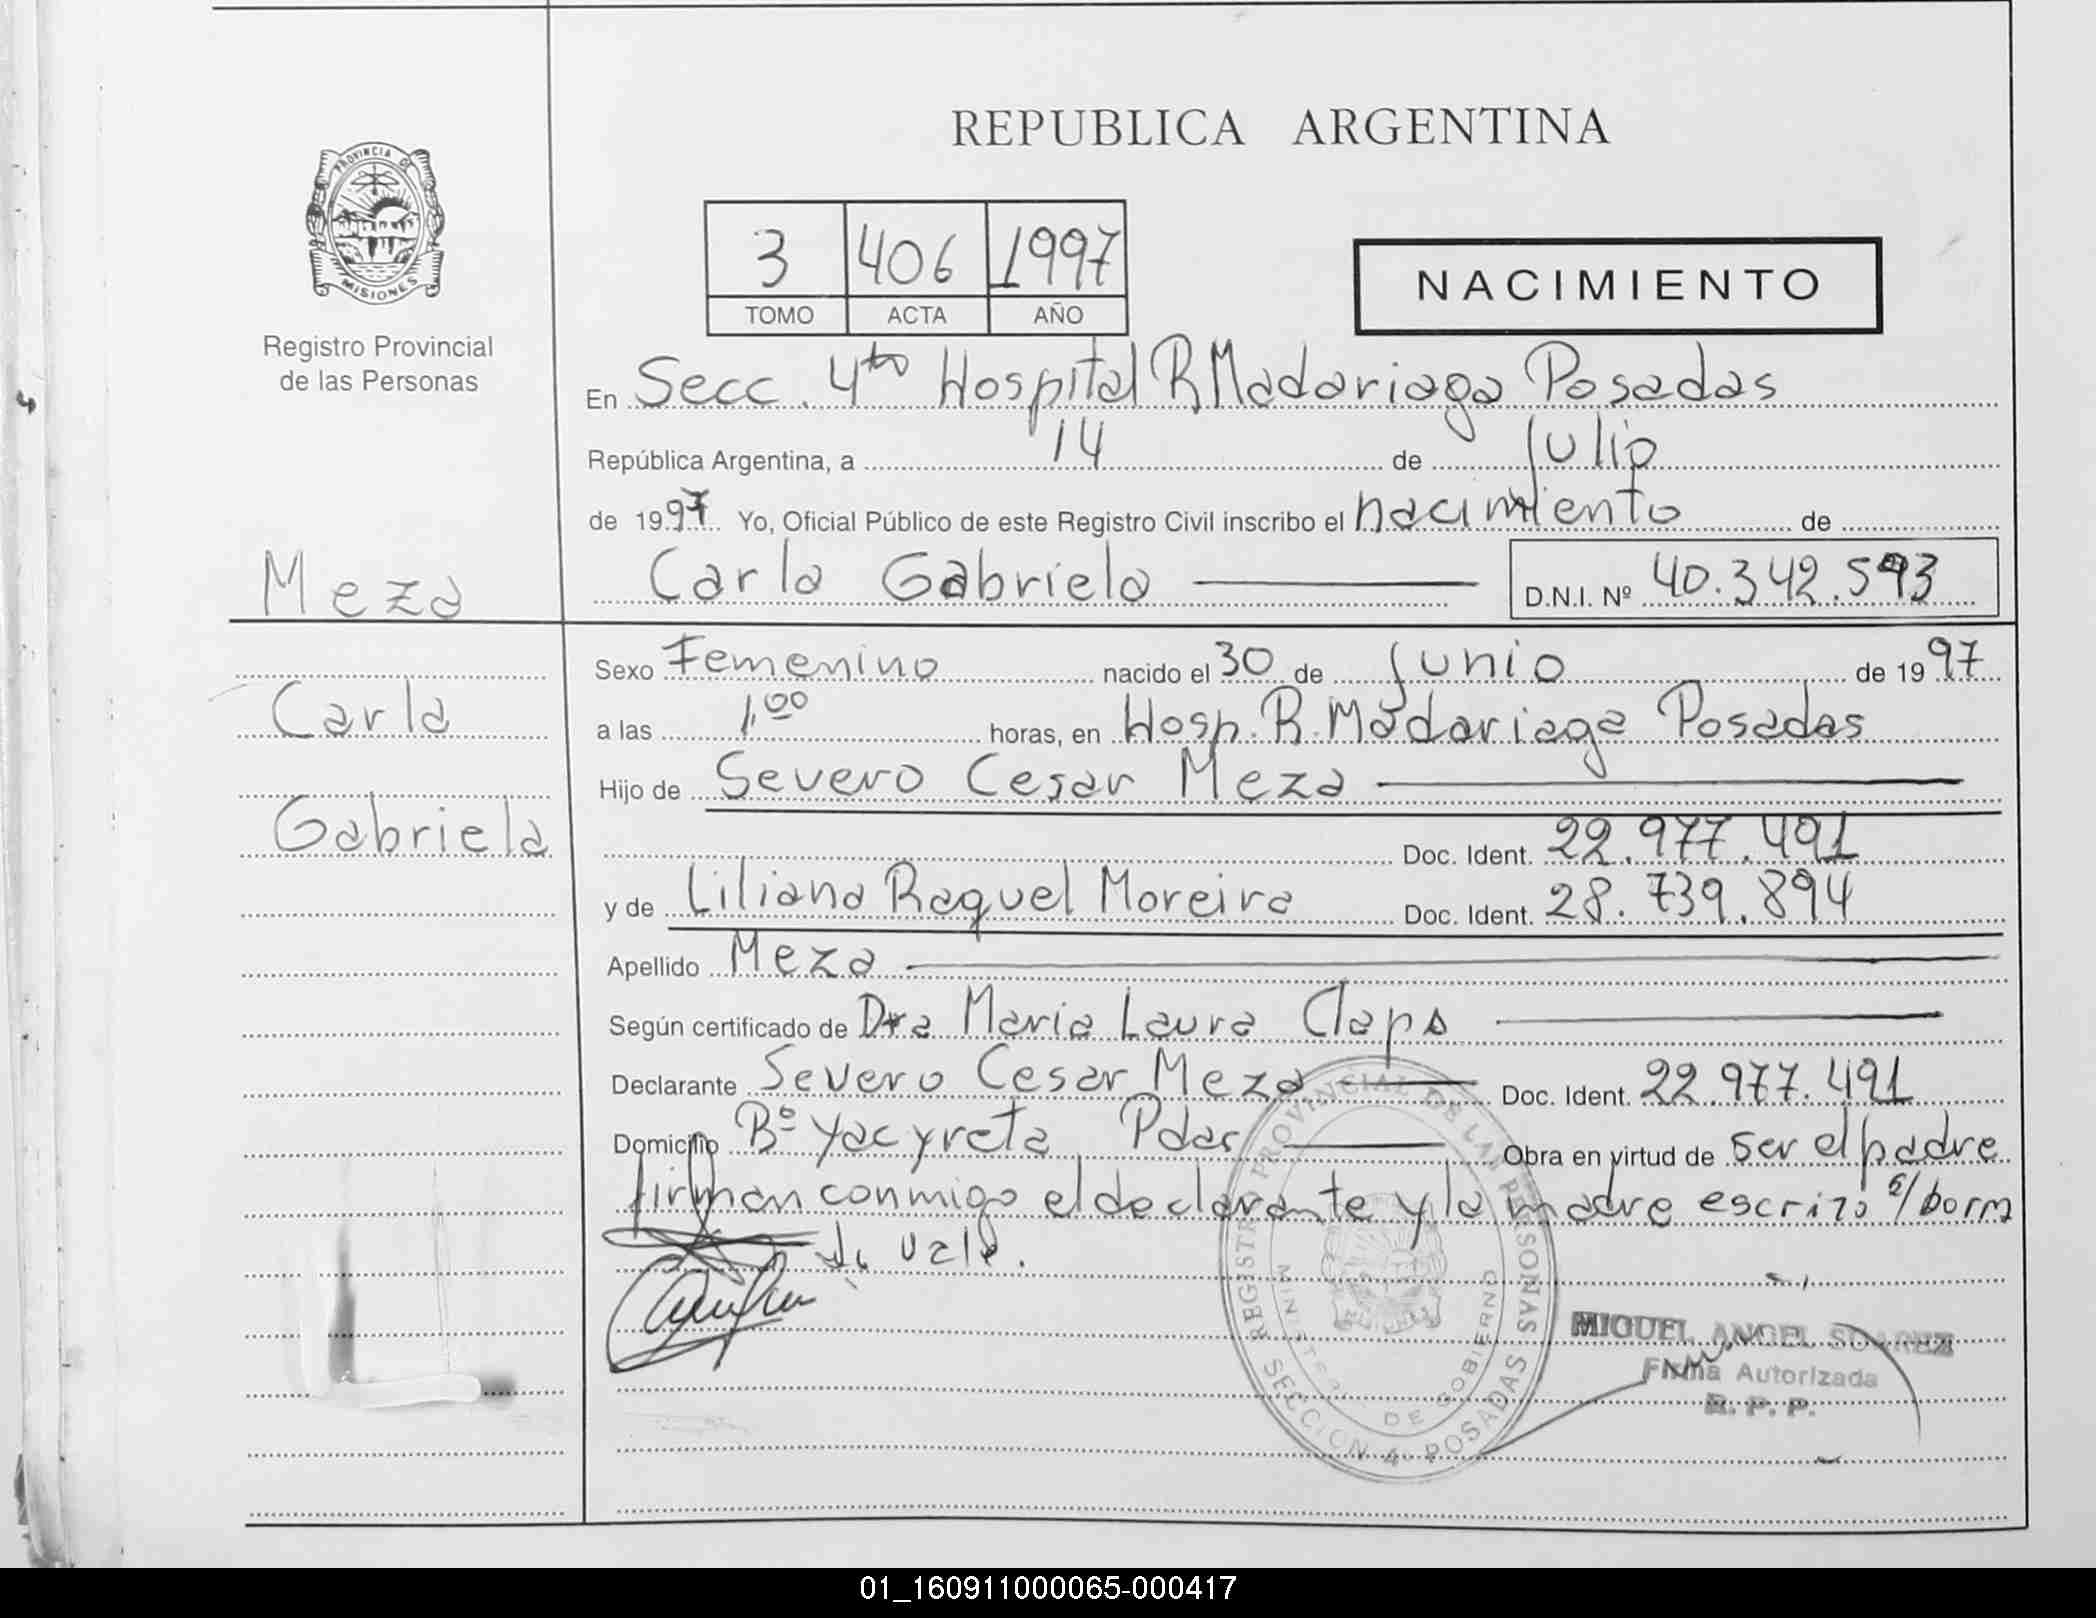 REPUBLICA ARGENTINA
PROVINCIA DE
MISIONES
Registro Provincial
de las Personas
3 406 1997
TOMO ACTA AÑO
NACIMIENTO
En Secc. 4ta Hospital R Madariaga Posadas
República Argentina, a 14 de Julio
de 1997 Yo, Oficial Público de este Registro Civil inscribo el nacimiento de
Carla Gabriela D.N.I. Nº 40.342.593
Meza
Carla
Gabriela
Sexo Femenino nacido el 30 de Junio de 1997
a las 1,00 horas, en Hosp. R. Madariaga Posadas
Hijo de Severo Cesar Meza
Doc. Ident. 22.977.491
y de Liliana Raquel Moreira Doc. Ident. 28.739.894
Apellido Meza
Según certificado de Dra Maria Laura Claps
Declarante Severo Cesar Meza Doc. Ident. 22.977.491
Domicilio Bº Yacyreta Pdas Obra en virtud de ser el padre
firman conmigo el declarante y la madre escrizo s/borra
vale.
REGISTRO PROVINCIAL DE LAS PERSONAS
MINISTERIO DE GOBIERNO
SECCION 4º POSADAS
MIGUEL ANGEL SUAREZ
Firma Autorizada
R. P. P.
01_160911000065-000417